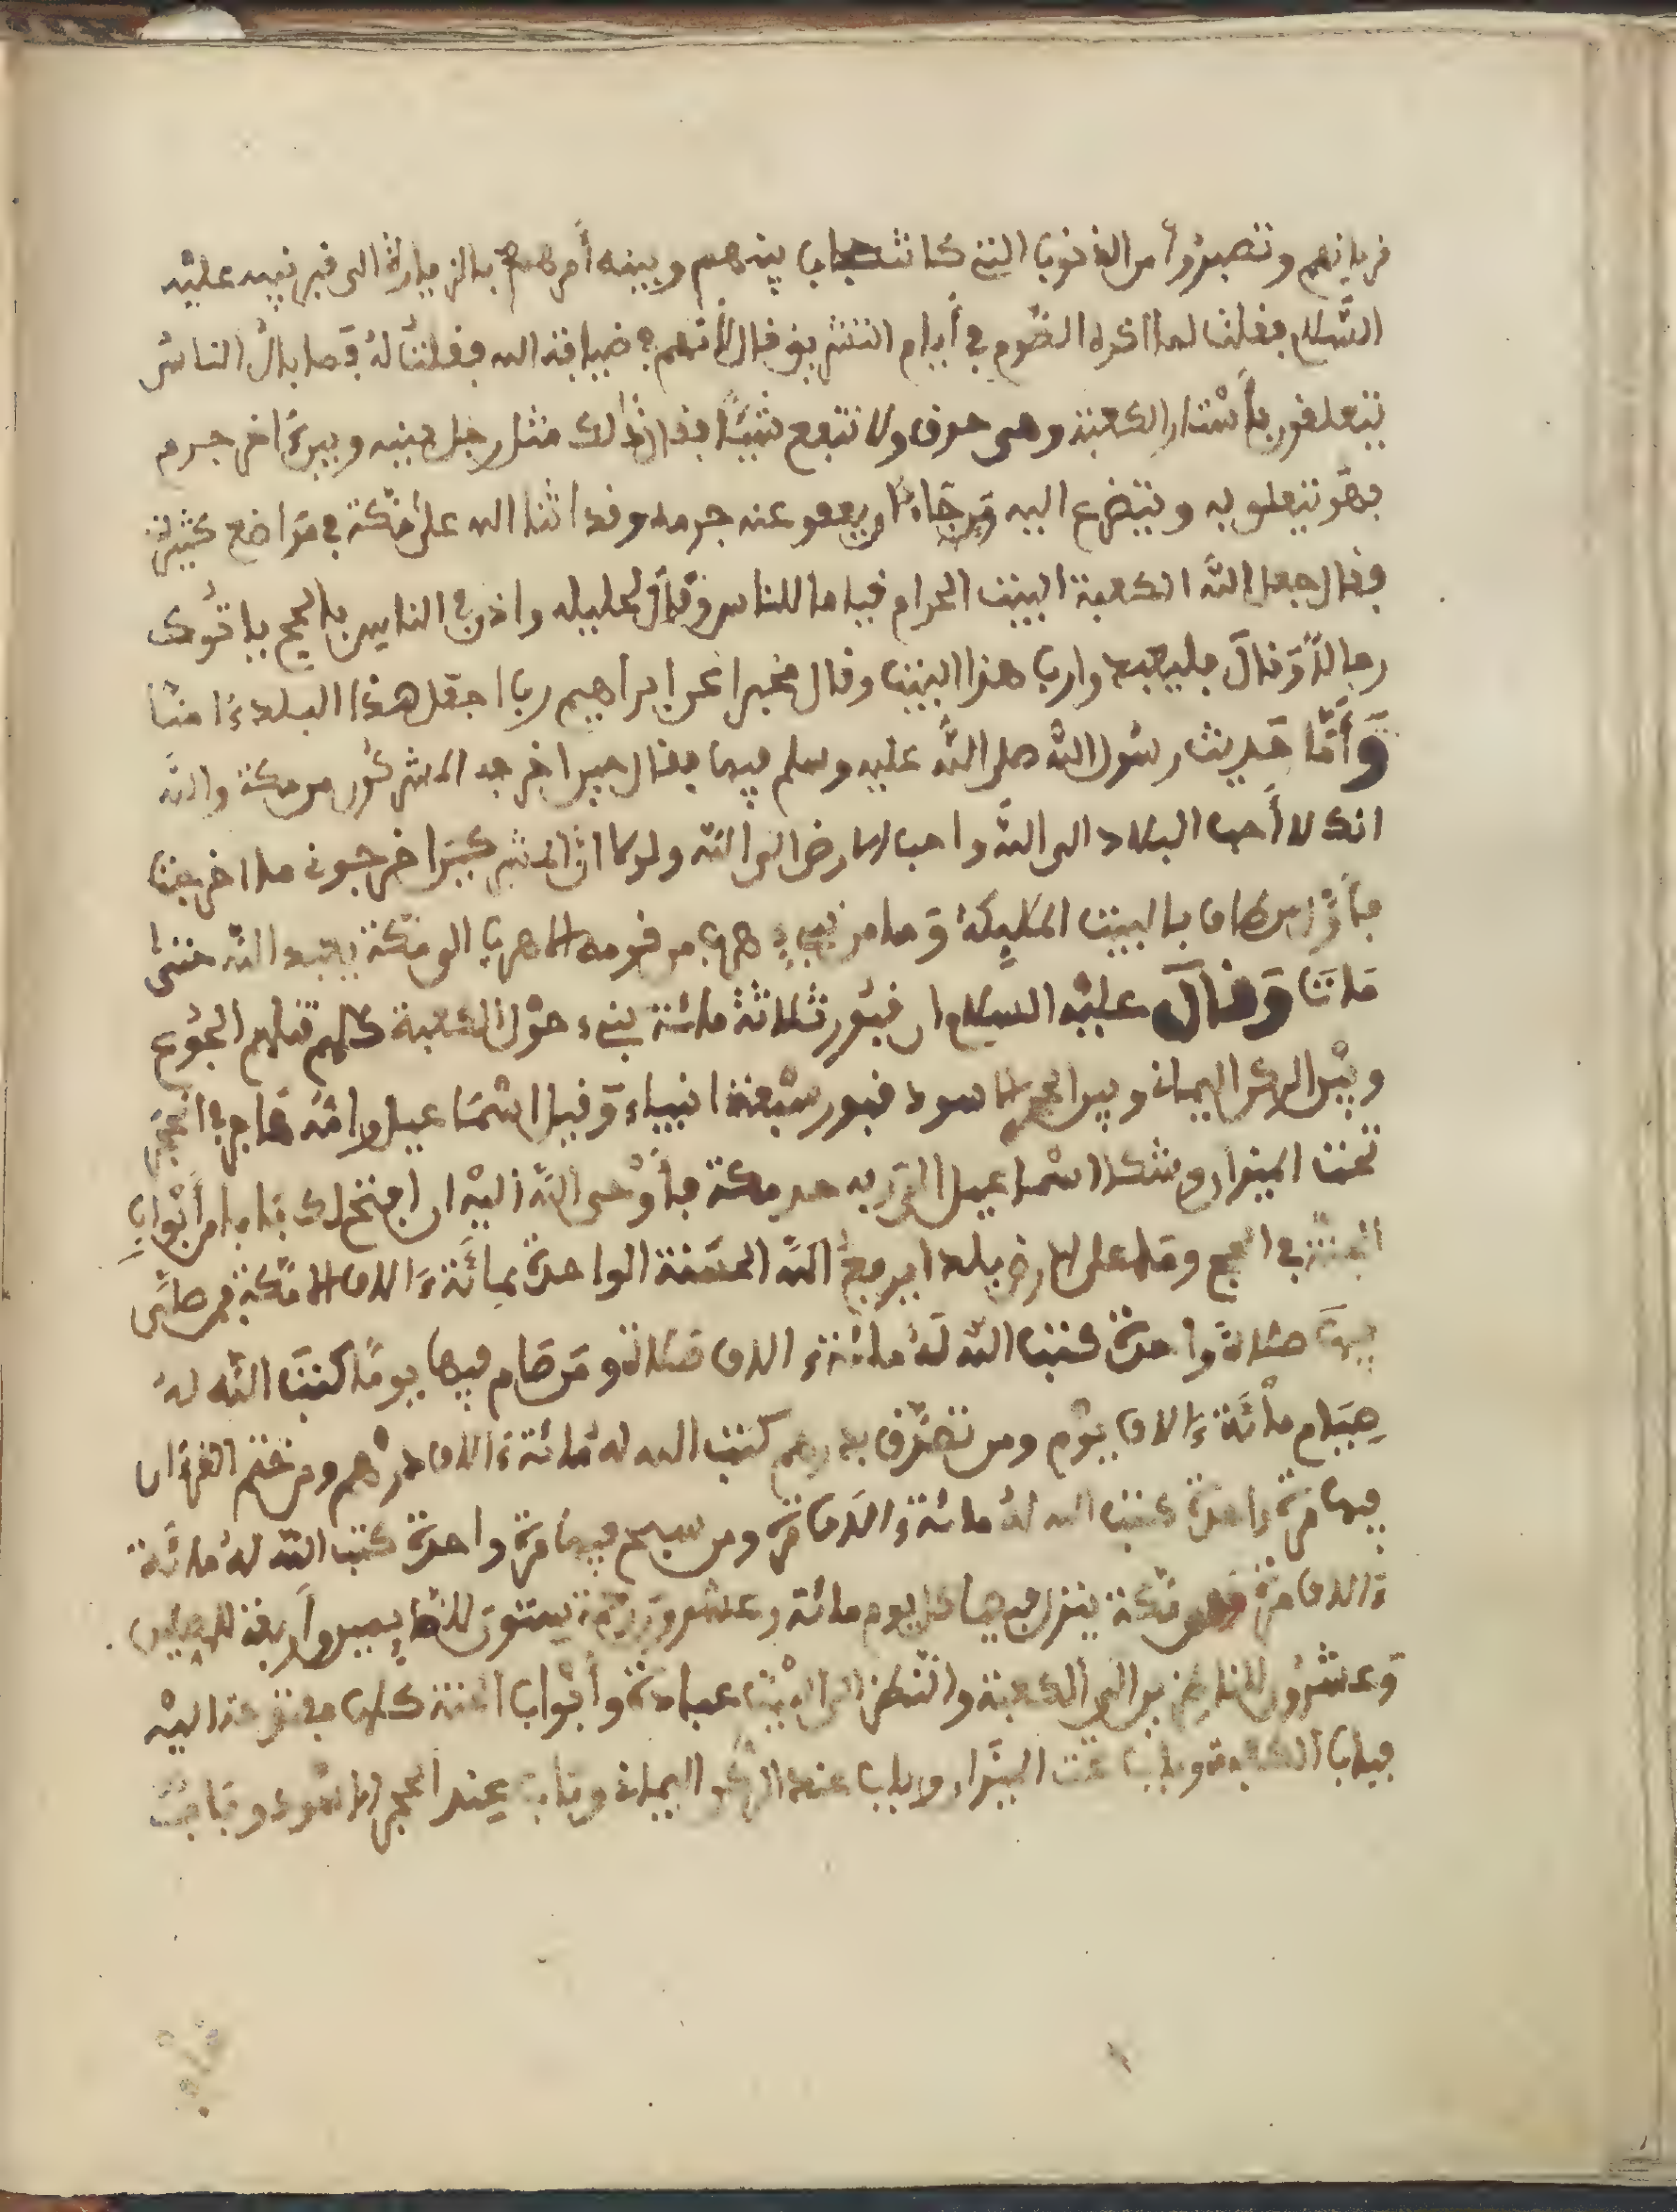 قربانهم وتطهروا من الذنوب التي كانت حجابا بينهم وبينه أمرهم بالزيارة الى قبر نبيه عليه
السَّلام فقلنا لما اكره الصَّوم في أيام التشريق قال لأنهم في ضيافة الله فقلنا لهُ فما بال الناس
يتعلقون بأسْتار الكعبة وهى خرق ولا تنفع شيئًا فقال ذالك مثل رجل بينه وبين ءاخر جرم
فهو يتعلق به ويتضرع اليه ورجاء ان يعفو عنه جرمه وقد اثنا الله على مَكّة في مَواضع كثيرة
فقال جعل اللهُ الكعبة البيت الحرام قياما للناس وقال لخليله واذن في الناس بالحج ياتوك
رجالاً وَقالَ فليعبدوا رب هذا البيت وقال مخبرا عن ابراهيم رب اجعل هذا البلد ءَامنًا
وَأَمَّا حَديث رسُول اللهُ صلى اللهُ عليه وسلم فيها فقال حين اخرجه المشركُون من مكة والله
انك لأحب البلاد الى اللهُ واحب الارض الى اللهُ ولولا انّ المشركين اخرجونى ما اخرجت
فأوّل من طاف بالبيت الملايكة وَما من نبيءٍ هرب من قومه الا هرب الى مكّة يعبد اللهَ حتى
مَات وَقالَ عليْه السَّلام ان قبُور ثلاثة مائة نبيء حوْل الكعبة كلهم قتلهم الجُوع
وبيْن الركن اليمانى وبين الحجر الاسود قبور سبْعة انبياء وَقبرا اسْماعيل وامّه هَاجر في الحجْر
تحت الميزاب وشكا اسْماعيل الى رَبه حر مكة فأوْحى اللهُ اليْه ان افتح لك بابا من أبْواب
الجنة في الحجر وما على الارض بلد ايرفع اللهُ الحسَنة الواحدة بمائة ءَالاف الا مَكّة فمن صلى
فيها صلاة واحدة كتب اللهُ لَهُ مائة ءالاف صَلاة ومَن صَام فيها يومًا كتبَ الله لهُ
صيَام مائة ءَالاف يوْم ومن تصدّق بدرهم كتب الله له مائة ءَالاف درْهم ومن ختم القرءان
فيها مَرّة واحدة كتب الله لهُ مائة ءَالاف مَرّة ومن سبح فيها مَرّة واحدة كتب اللهُ لهُ مائة
ءَالاف مَرّة فهى مَكّة ينزل فيها كل يوم مائة وعشرون رَحْمة ستون للطايفين وأربعة للمصلين
وَعشرُون للناظرين الى الكعبة والنظر الى البيْت عبادة وأبْواب الجنة كلها مفتوحة اليْه
فباب الكعبة وباب تحت الميزاب وباب عند الركن اليمانى وباب عند الحجر الاسود وباب